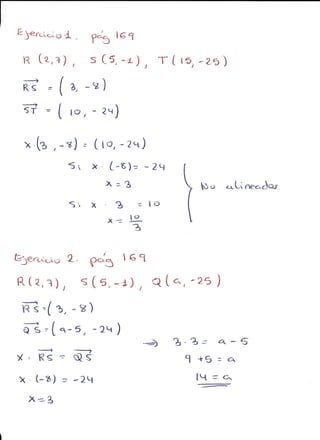 Ejercicio 1. pág 169
R (2,7), S (5,-1), T (15,-25)
RS = (3, -8)
ST = (10, -24)
x·(3, -8) = (10, -24)
Si x · (-8) = -24
x = 3
No alineados
Si x · 3 = 10
x = 10/3
Ejercicio 2. pág 169
R (2,7), S (5,-1), Q (a, -25)
RS = (3, -8)
QS = (a-5, -24)
→ 3·3 = a - 5
x · RS = QS
9 + 5 = a
x · (-8) = -24
14 = a
x = 3